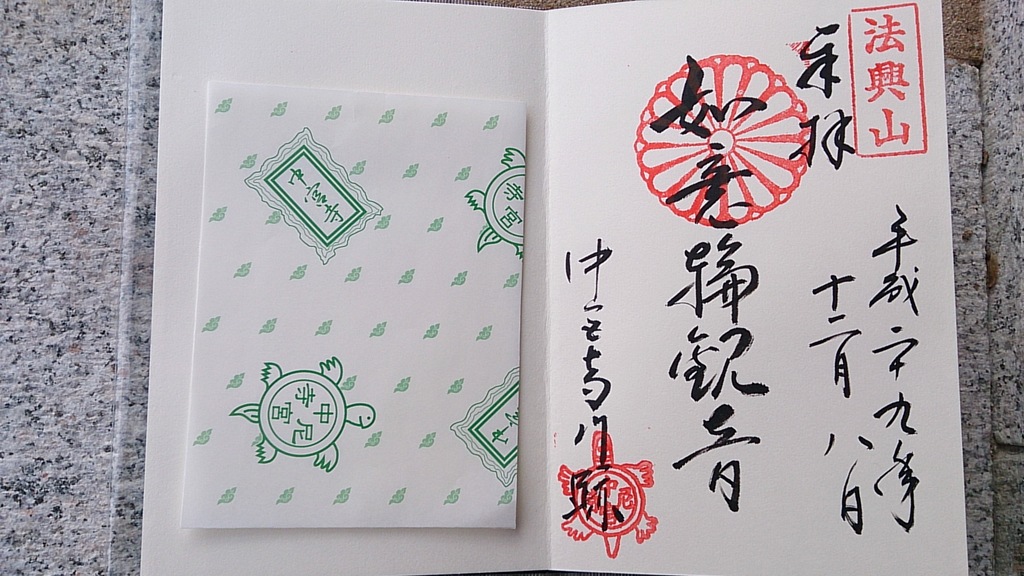 法興山
奉拝
平成二十九年
十二月八日
如意輪観音
中宮寺門跡
中宮寺
中宮尼寺
寺宮
中宮